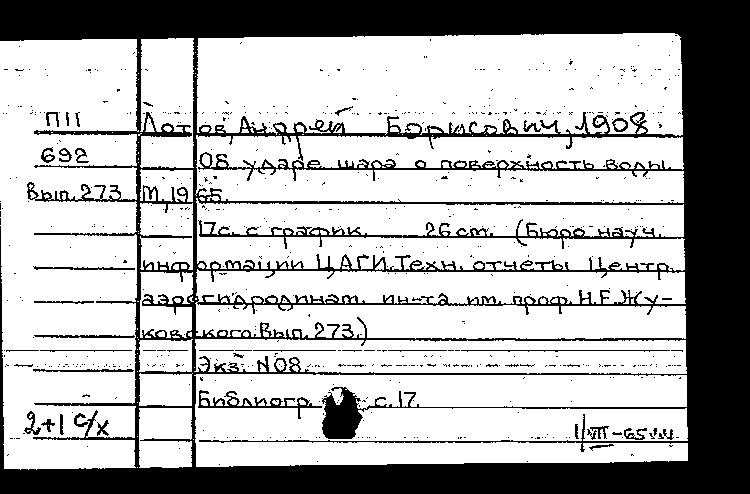 П11 Лотов, Андрей Борисович, 1908.
692 Об ударе шара о поверхность воды.
Вып. 273 М., 1965.
17с. с график. 26 см. (Бюро науч.
информации ЦАГИ. Техн. отчеты Центр.
аэрогидродинам. ин-та им. проф. Н.Е. Жу-
ковского. Вып. 273.)
Экз. N 08.
Библиогр. с. 17.
2+1 с/х